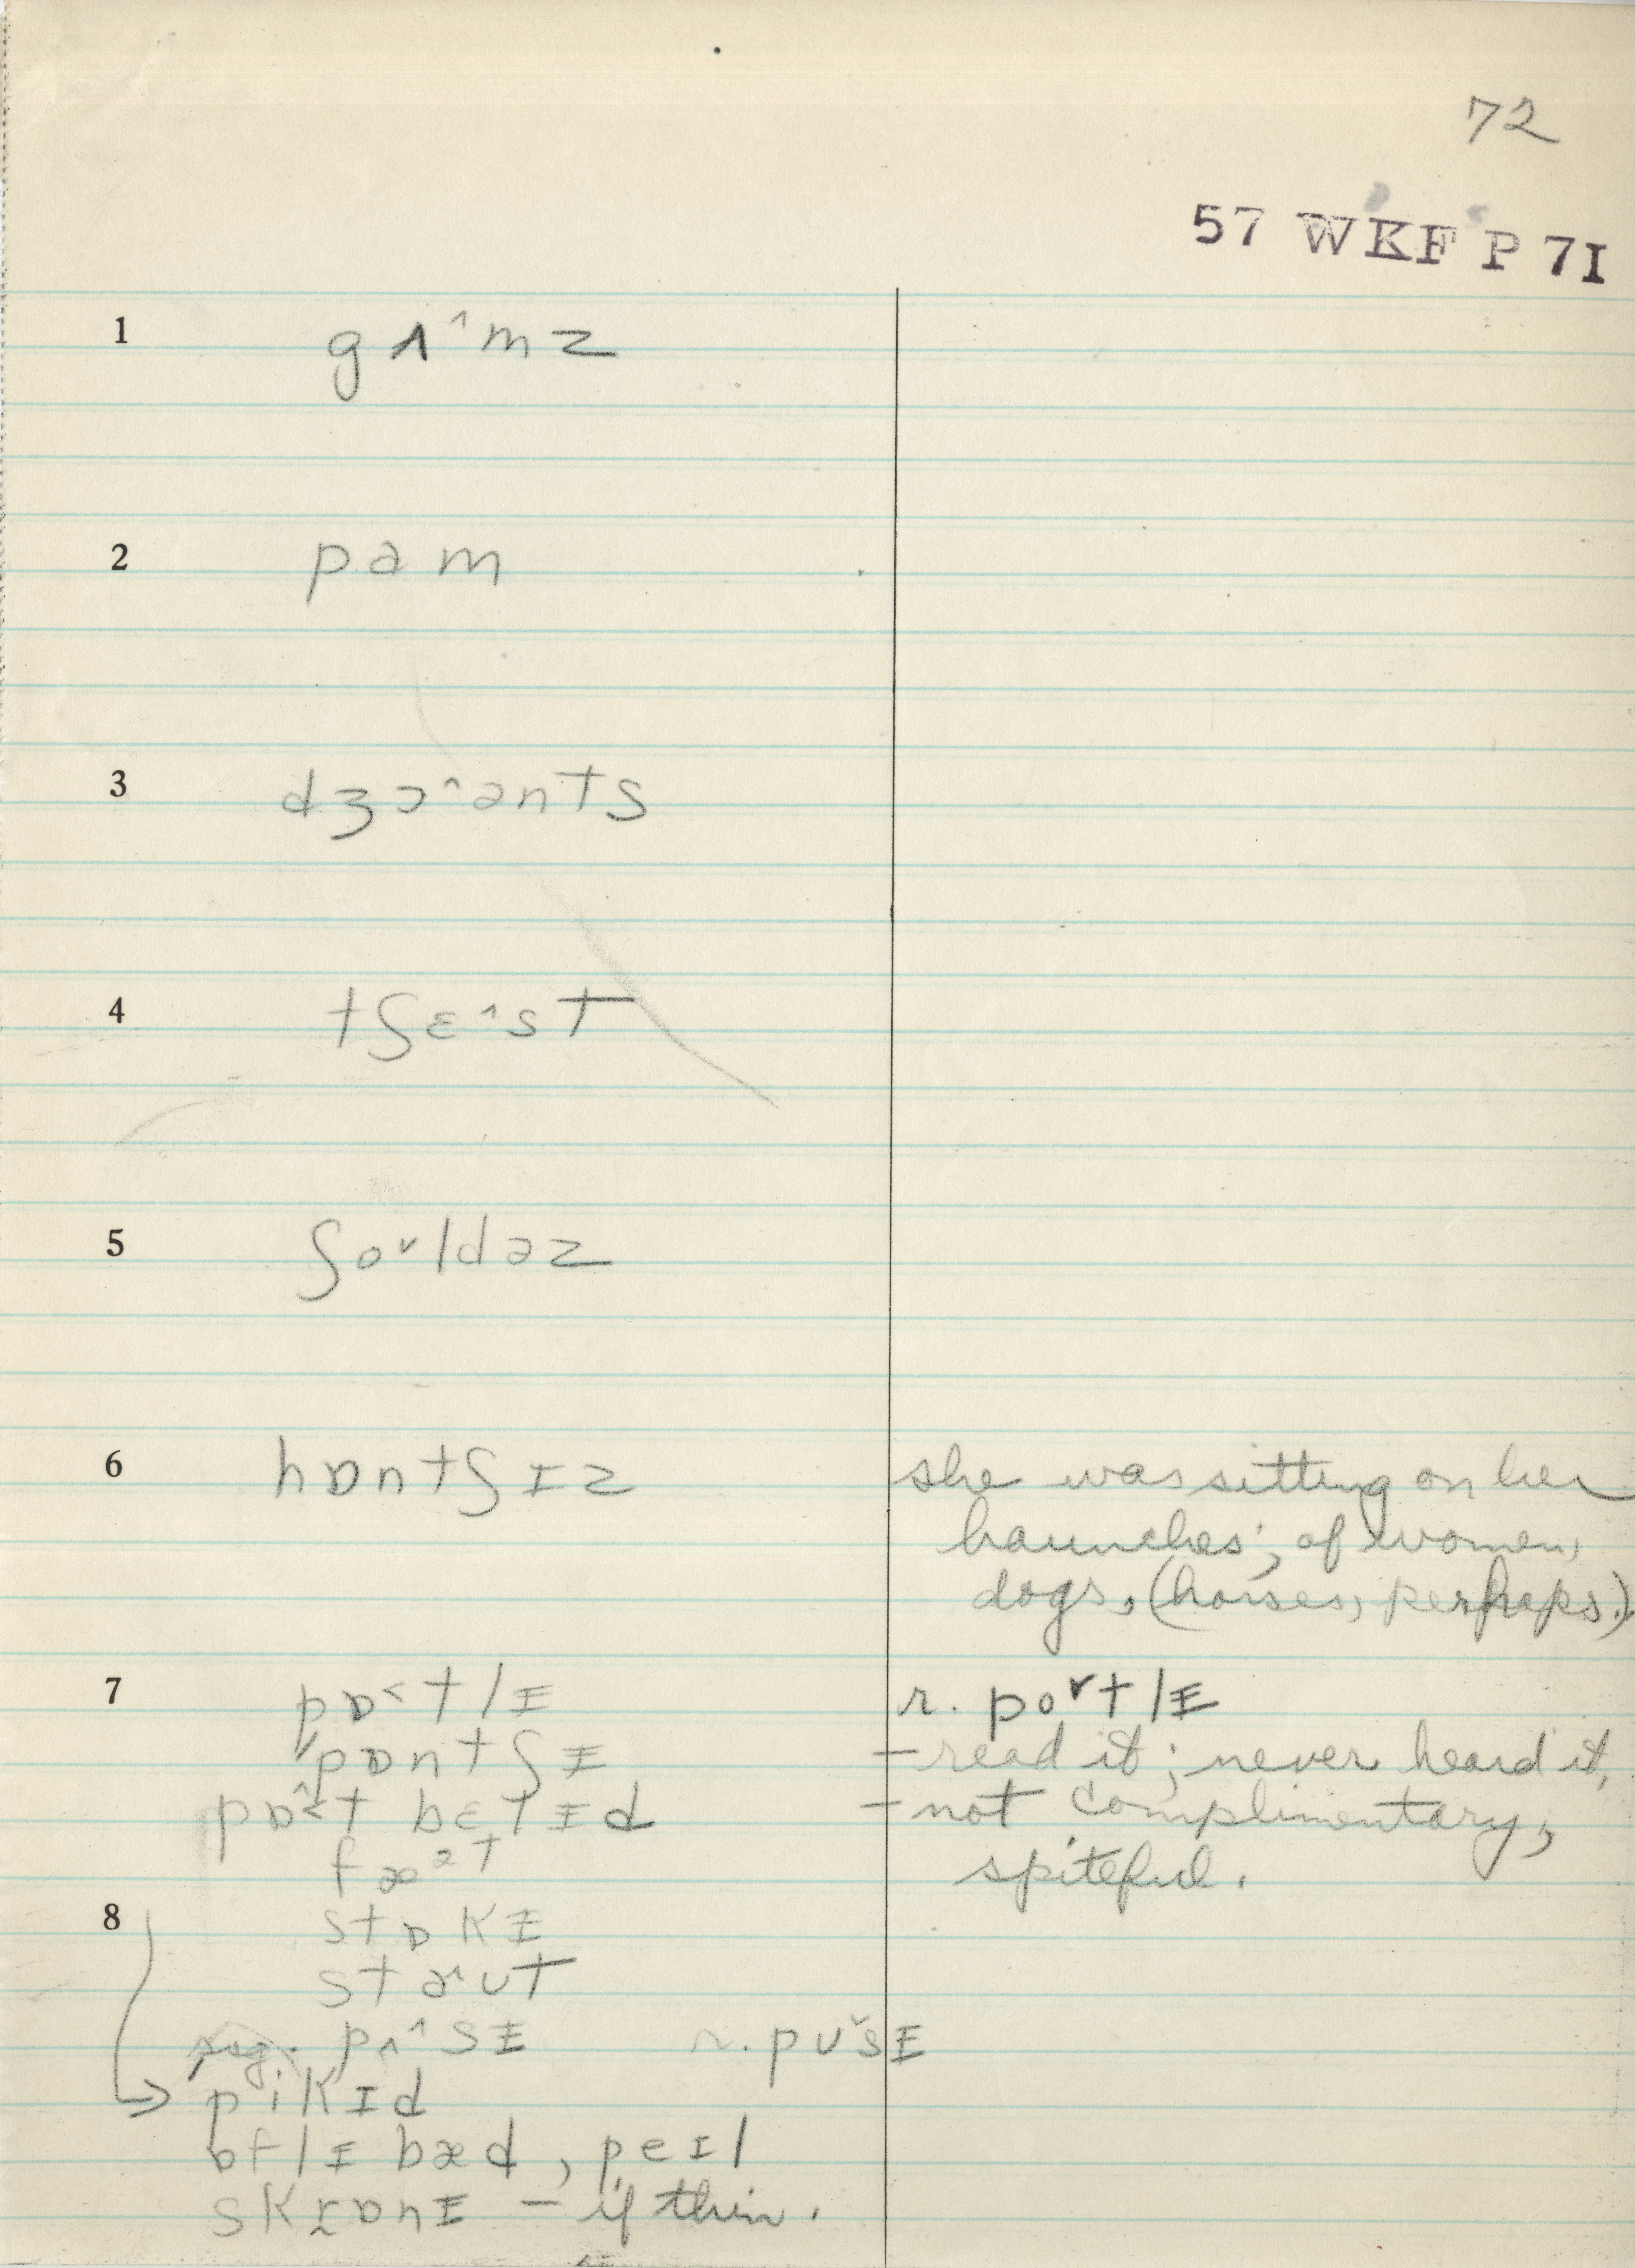 72
57 WKF P 71
1 gʌ^mz
2 pam
3 dʒɔ^ənts
4 tʃɛ^st
5 ʃo˅ldəz
6 hɒntʃɪz she was sitting on her
haunches; of women,
dogs, (horses, perhaps).
7 pɒ˂tlɪ r. po˅tlɪ
pɒntʃɪ – read it; never heard it,
pɒ˂t bɛlɪd – not complimentary,
fæᵊt spiteful.
8 stɒkɪ
staʊt
sug. pʌ^sɪ r. pʊ˅sɪ
pikɪd
ɒflɪ bæd, peɪl
skrɒnɪ – if thin.